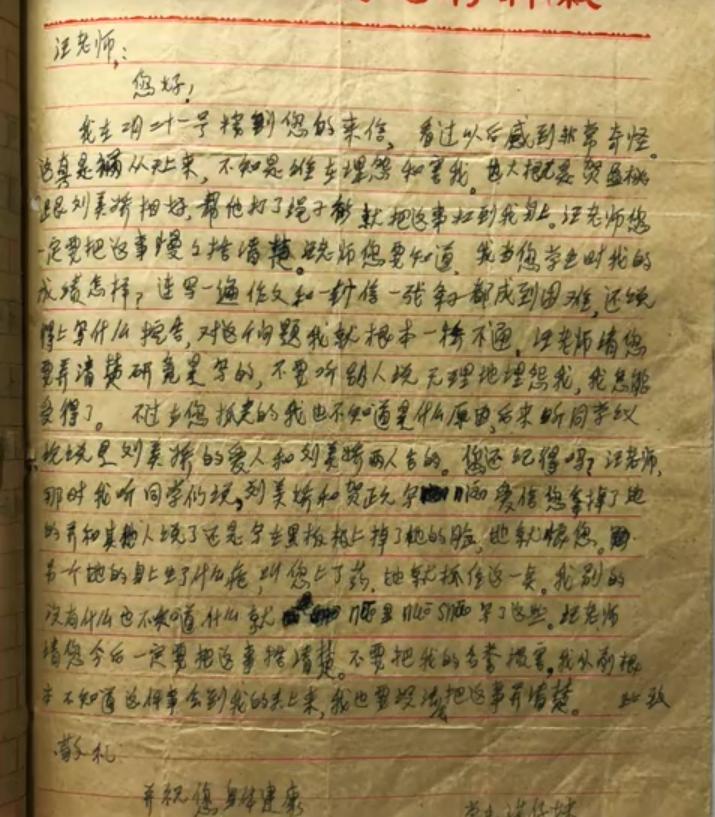 汪老师:
您好!
我在二月二十一号接到您的来信,看过以后感到非常奇怪。
这真是祸从天上来,不知是谁在埋怨和害我。也大概是贺孟桃
跟刘美娇相好,帮他打了绳子 就把这事扛到我身上。汪老师您
一定要把这事慢々搞清楚。汪老师您要知道,我当您学生时我的
成绩怎样?连写一编作文和一封信一张 都成到困难,还说
得上写什么控告,对这个问题我就根本一窍不通,汪老师请您
要弄清楚研究是写的,不要听别人说无理地埋怨我,我怎能
受得了。不过去您抓走的我也不知道是什么原由,后来听同学议
说说是刘美娇的爱人和刘美娇两人告的。您还记得吗?汪老师,
那时我听同学们说,刘美娇和贺正 字 爱信您拿掉了她
的并和其他人说了还是字在黑板板上掉了她的脸,她就恨您。
另一个她的身上生了什么疮,叫您上了药,她就抓住这一点。我别的
没有什么也不知道什么就 写了这些。汪老师
请您今后一定要把这事搞清楚。不要把我的名誉损害,我从前根
本不知道这件事会到我的头上来,我也要设法把这事弄清楚。 此致
敬礼
并祝您身体健康
学生